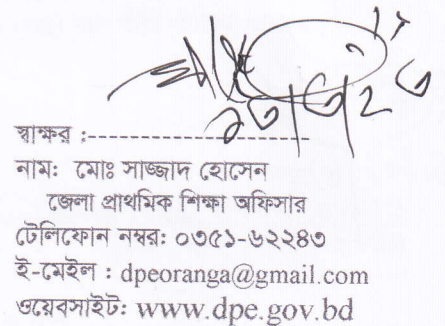 স্বাক্ষর :-------------------------
নাম: মোঃ সাজ্জাদ হোসেন
জেলা প্রাথমিক শিক্ষা অফিসার
টেলিফোন নম্বর: ০৩৫১-৬২২৪৩
ই-মেইল : dpeoranga@gmail.com
ওয়েবসাইট: www.dpe.gov.bd